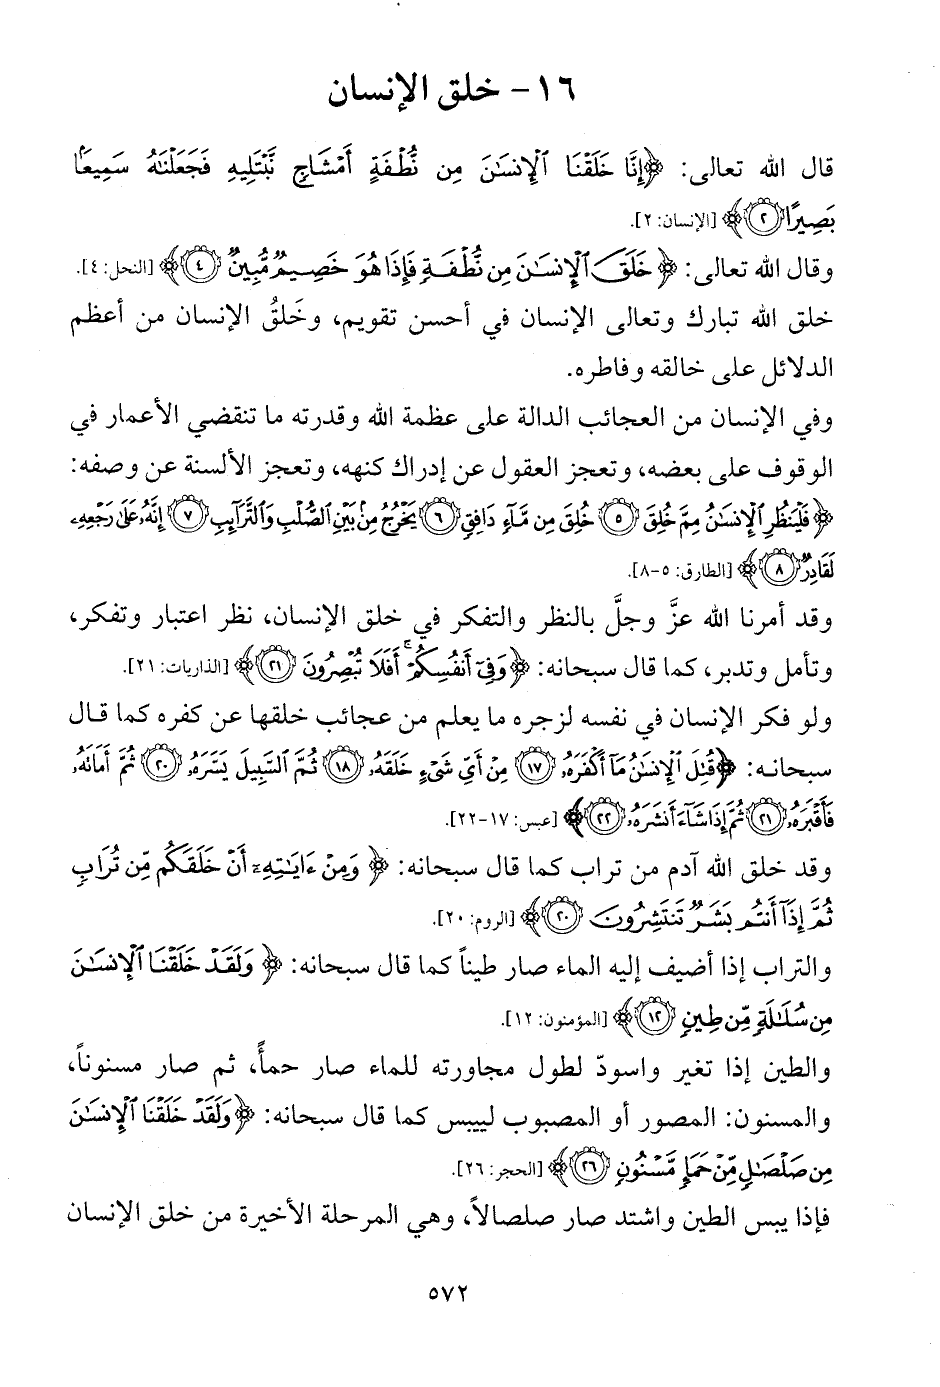 ١٦- خلق الإنسان
قال الله تعالى: ﴿إِنَّا خَلَقْنَا ٱلْإِنسَٰنَ مِن نُّطْفَةٍ أَمْشَاجٍ نَّبْتَلِيهِ فَجَعَلْنَٰهُ سَمِيعًۢا
بَصِيرًا ۝٢﴾ [الإنسان: ٢].
وقال الله تعالى: ﴿خَلَقَ ٱلْإِنسَٰنَ مِن نُّطْفَةٍ فَإِذَا هُوَ خَصِيمٌ مُّبِينٌ ۝٤﴾ [النحل: ٤].
خلق الله تبارك وتعالى الإنسان في أحسن تقويم، وخَلقُ الإنسان من أعظم
الدلائل على خالقه وفاطره.
وفي الإنسان من العجائب الدالة على عظمة الله وقدرته ما تنقضي الأعمار في
الوقوف على بعضه، وتعجز العقول عن إدراك كنهه، وتعجز الألسنة عن وصفه:
﴿فَلْيَنظُرِ ٱلْإِنسَٰنُ مِمَّ خُلِقَ ۝٥ خُلِقَ مِن مَّآءٍ دَافِقٍ ۝٦ يَخْرُجُ مِنۢ بَيْنِ ٱلصُّلْبِ وَٱلتَّرَآئِبِ ۝٧ إِنَّهُۥ عَلَىٰ رَجْعِهِۦ
لَقَادِرٌ ۝٨﴾ [الطارق: ٥-٨].
وقد أمرنا الله عزَّ وجلَّ بالنظر والتفكر في خلق الإنسان، نظر اعتبار وتفكر،
وتأمل وتدبر، كما قال سبحانه: ﴿وَفِىٓ أَنفُسِكُمْ ۚ أَفَلَا تُبْصِرُونَ ۝٢١﴾ [الذاريات: ٢١].
ولو فكر الإنسان في نفسه لزجره ما يعلم من عجائب خلقها عن كفره كما قال
سبحانه: ﴿قُتِلَ ٱلْإِنسَٰنُ مَآ أَكْفَرَهُۥ ۝١٧ مِنْ أَىِّ شَىْءٍ خَلَقَهُۥ ۝١٨ ثُمَّ ٱلسَّبِيلَ يَسَّرَهُۥ ۝٢٠ ثُمَّ أَمَاتَهُۥ
فَأَقْبَرَهُۥ ۝٢١ ثُمَّ إِذَا شَآءَ أَنشَرَهُۥ ۝٢٢﴾ [عبس: ١٧-٢٢].
وقد خلق الله آدم من تراب كما قال سبحانه: ﴿وَمِنْ ءَايَٰتِهِۦٓ أَنْ خَلَقَكُم مِّن تُرَابٍ
ثُمَّ إِذَآ أَنتُم بَشَرٌ تَنتَشِرُونَ ۝٢٠﴾ [الروم: ٢٠].
والتراب إذا أضيف إليه الماء صار طيناً كما قال سبحانه: ﴿وَلَقَدْ خَلَقْنَا ٱلْإِنسَٰنَ
مِن سُلَٰلَةٍ مِّن طِينٍ ۝١٢﴾ [المؤمنون: ١٢].
والطين إذا تغير واسودّ لطول مجاورته للماء صار حمأً، ثم صار مسنوناً،
والمسنون: المصور أو المصبوب لييبس كما قال سبحانه: ﴿وَلَقَدْ خَلَقْنَا ٱلْإِنسَٰنَ
مِن صَلْصَٰلٍ مِّنْ حَمَإٍ مَّسْنُونٍ ۝٢٦﴾ [الحجر: ٢٦].
فإذا يبس الطين واشتد صار صلصالاً، وهي المرحلة الأخيرة من خلق الإنسان
٥٧٢